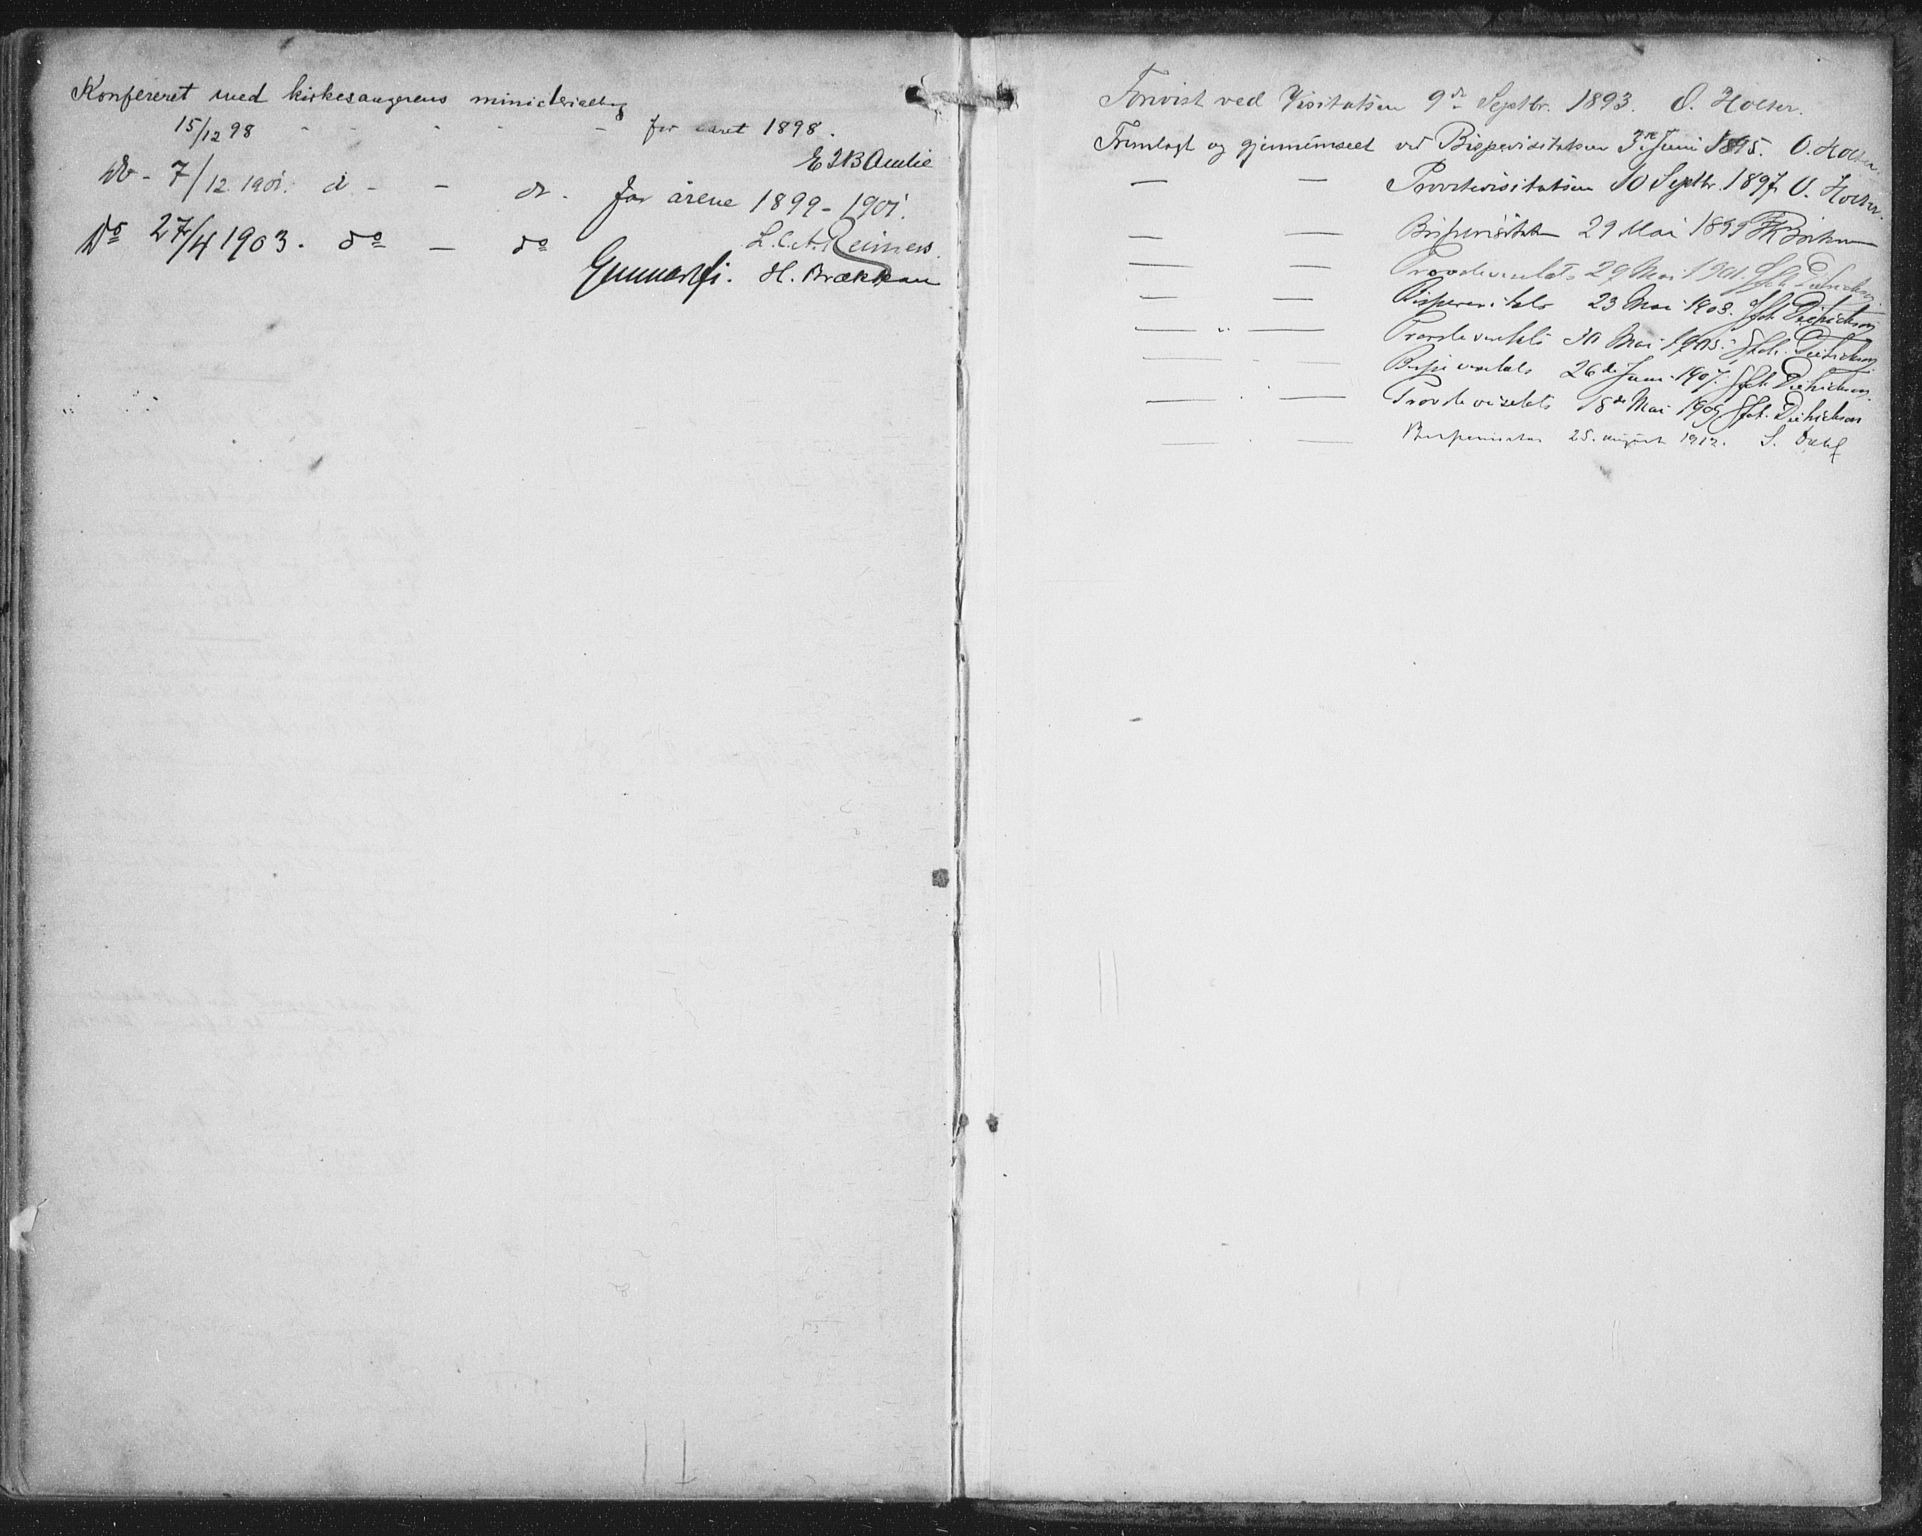 Konfereret med kirkesangerens ministerialbog
15/12 98 - - - - - for aaret 1898.
Do - 7/12 1901. d - - do - for årene 1899-1901.
L. C. A. Reimers.
Do 27/4 1903. do - do
H. Brækkan
Forevist ved Visitatsen 9de Septbr. 1893. O. Holter.
Fremlagt og gjennemseet ved Bispevisitatsen 3die Juni 1895. O. Holter.
— — Provstevisitatsen 10 Septbr. 1897. O. Holter.
— — Bispevisitatsen 29 Mai 1899
— — Provstevisitats 29 Mai 1901. Joh. Dietrichson
— — Bispevisitats 23 Mai 1903. Joh. Dietrichson
— " — Provstevisitats Mai 1905. Joh. Dietrichson
— — Bispevisitats 26de Juni 1907. Joh. Dietrichson.
— . — Provstevisitats 18de Mai 1909. Joh. Dietrichson
— . — Bispevisitas 25. august 1912. S. Dahl